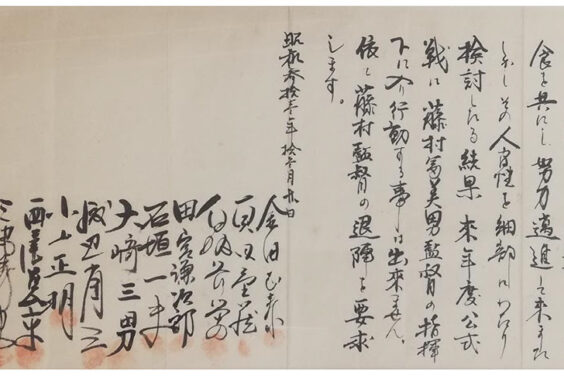 食を共にし努力邁進して来ました
しかしその人間性を細部にわたり
検討したる結果来年度公式
戦に藤村富美男監督の指揮
下に入り行動する事は出来ません。
依て藤村監督の退陣を要求
します。
昭和参拾壱年拾壱月
金田正泰
真田重蔵
田宮謙次郎
石垣一夫
大崎三男
渡辺省三
小山正明